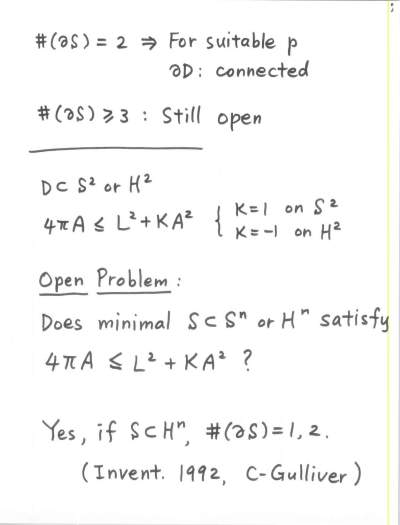 #(∂S) = 2 ⇒ For suitable p
∂D : connected
#(∂S) ≥ 3 : Still open
D ⊂ S² or H²
4πA ≤ L² + KA² { K=1 on S²
K=-1 on H²
Open Problem :
Does minimal S ⊂ Sⁿ or Hⁿ satisfy
4πA ≤ L² + KA² ?
Yes, if S ⊂ Hⁿ, #(∂S) = 1, 2.
(Invent. 1992, C-Gulliver)